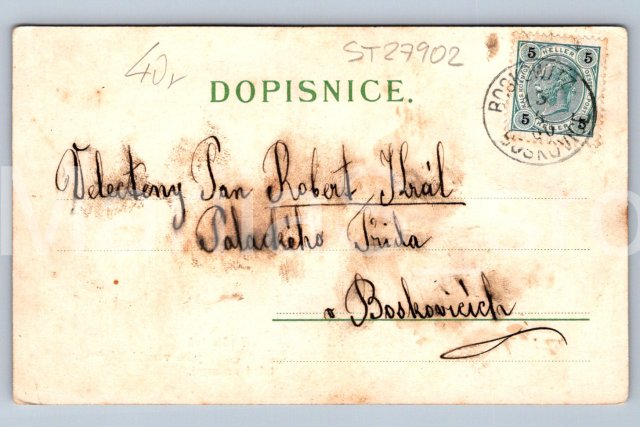 40,-
ST27902
5 HELLER 5
5 5
BOSKOWITZ
BOSKOVICE
DOPISNICE.
Velectěný Pan Robert Král
Palackého Třída
v Boskovicích